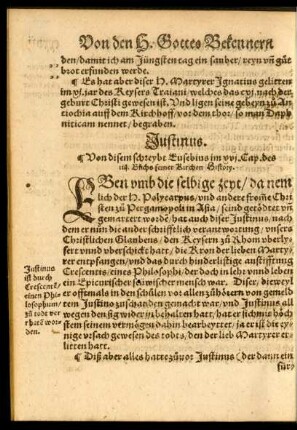 Von den H. Gottes Bekennern
den/ damit ich am Jüngsten tag ein sauber/ reyn vñ gůt
brot erfunden werde.
¶ Es hat aber diser H. Martyrer Ignatius gelitten
im xj. jar des Keysers Traiani/ welches das cxj. nach der
geburt Christi gewesen ist. Vnd ligen seine gebeyn zů An
tiochia auff dem Kirchhoff/ vor dem thor/ so man Daph
niticam nennet/ begraben.
Justinus.
¶ Von disem schreybt Eusebius im xvj. Cap. des
iiij. Bůchs seiner Kirchen History.
EBen vmb die selbige zeyt/ da nem
lich der H. Polycarpus/ vnd andere fromē Chri
sten zů Pergamopoli in Asia/ seind getödtet vñ
gemartert worde/ hat auch diser Justinus/ nach
dem er nun die ander schrifftlich verantwortung/ vnsers
Christlichen Glaubens/ den Keysern zů Rhom vberly
fert vnnd vberschickt hatt/ die Kron der lieben Marty
rer entpfangen/ vnd das durch hinderlistige anstifftung
Crescentis/ eines Philosophi/ der doch in lehr vnnd leben
ein Epicurischer seüwischer mensch war. Diser/ diewyl
er offtmals in den schůlen vor allen zůhörern von gemel
tem Justino zuschanden gemacht war/ vnd Justinus all
wegen den sig wider jn behalten hatt/ hat er sich mis höch
stem seinem vermögen dahin bearbeyttet/ ja er ist die ey
nige vrsach gewesen des todts/ den der lieb Martyrer er
litten hatt.
Justinus
ist durch
Crescentē/
einen Phi
losophum/
zů todt ver
hatē wor
den.
¶ Diß aber alles hatte zůuor Justinus (der dann ein
für/